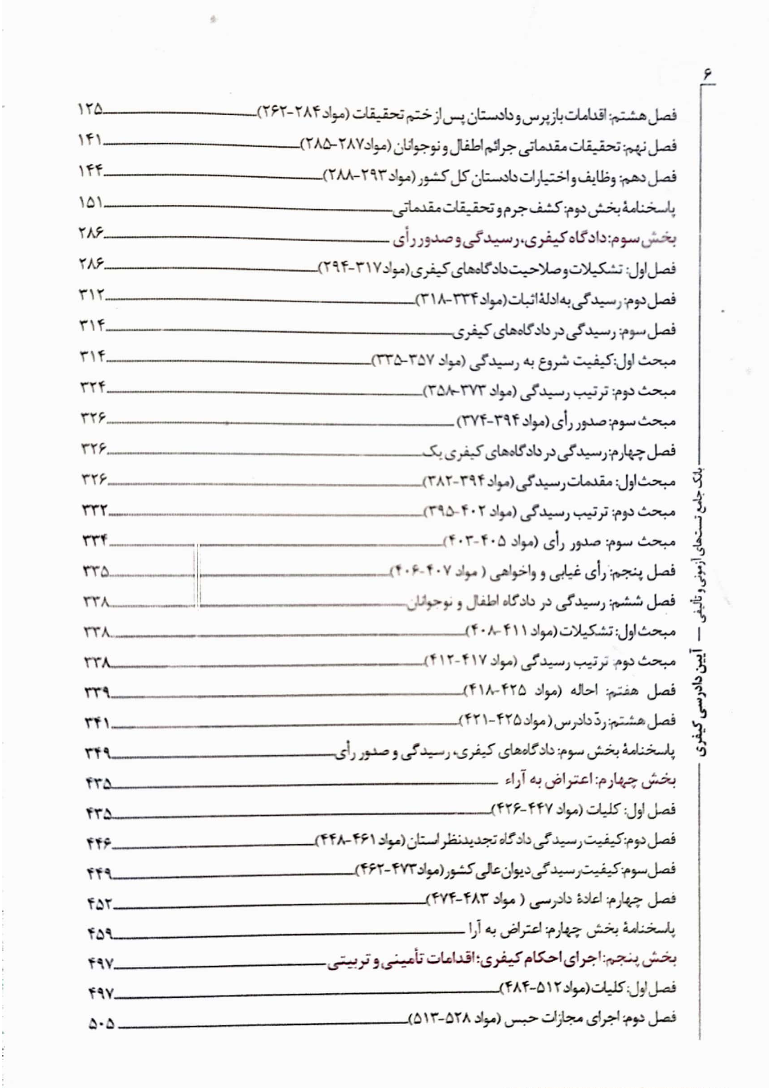 ۶
فصل هشتم: اقدامات بازپرس و دادستان پس از ختم تحقیقات (مواد ۲۸۴-۲۶۲) ۱۲۵
فصل نهم: تحقیقات مقدماتی جرائم اطفال و نوجوانان (مواد ۲۸۷-۲۸۵) ۱۴۱
فصل دهم: وظایف و اختیارات دادستان کل کشور (مواد ۲۹۳-۲۸۸) ۱۴۴
پاسخنامهٔ بخش دوم: کشف جرم و تحقیقات مقدماتی ۱۵۱
بخش سوم: دادگاه کیفری، رسیدگی و صدور رأی ۲۸۶
فصل اول: تشکیلات و صلاحیت دادگاه‌های کیفری (مواد ۳۱۷-۲۹۴) ۲۸۶
فصل دوم: رسیدگی به ادلهٔ اثبات (مواد ۳۳۴-۳۱۸) ۳۱۲
فصل سوم: رسیدگی در دادگاه‌های کیفری ۳۱۴
مبحث اول: کیفیت شروع به رسیدگی (مواد ۳۵۷-۳۳۵) ۳۱۴
مبحث دوم: ترتیب رسیدگی (مواد ۳۷۳-۳۵۸) ۳۲۴
مبحث سوم: صدور رأی (مواد ۳۹۴-۳۷۴) ۳۲۶
فصل چهارم: رسیدگی در دادگاه‌های کیفری یک ۳۲۶
مبحث اول: مقدمات رسیدگی (مواد ۳۹۴-۳۸۲) ۳۲۶
مبحث دوم: ترتیب رسیدگی (مواد ۴۰۲-۳۹۵) ۳۳۲
مبحث سوم: صدور رأی (مواد ۴۰۵-۴۰۳) ۳۳۴
فصل پنجم: رأی غیابی و واخواهی (مواد ۴۰۷-۴۰۶) ۳۳۵
فصل ششم: رسیدگی در دادگاه اطفال و نوجوانان ۳۳۸
مبحث اول: تشکیلات (مواد ۴۱۱-۴۰۸) ۳۳۸
مبحث دوم: ترتیب رسیدگی (مواد ۴۱۷-۴۱۲) ۳۳۸
فصل هفتم: احاله (مواد ۴۲۵-۴۱۸) ۳۳۹
فصل هشتم: ردّ دادرس (مواد ۴۲۵-۴۲۱) ۳۴۱
پاسخنامهٔ بخش سوم: دادگاه‌های کیفری، رسیدگی و صدور رأی ۳۴۹
بخش چهارم: اعتراض به آراء ۴۳۵
فصل اول: کلیات (مواد ۴۴۷-۴۲۶) ۴۳۵
فصل دوم: کیفیت رسیدگی دادگاه تجدیدنظر استان (مواد ۴۶۱-۴۴۸) ۴۴۶
فصل سوم: کیفیت رسیدگی دیوان عالی کشور (مواد ۴۷۳-۴۶۲) ۴۴۹
فصل چهارم: اعادهٔ دادرسی (مواد ۴۸۳-۴۷۴) ۴۵۲
پاسخنامهٔ بخش چهارم: اعتراض به آرا ۴۵۹
بخش پنجم: اجرای احکام کیفری؛ اقدامات تأمینی و تربیتی ۴۹۷
فصل اول: کلیات (مواد ۵۱۲-۴۸۴) ۴۹۷
فصل دوم: اجرای مجازات حبس (مواد ۵۲۸-۵۱۳) ۵۰۵
بانک جامع تست‌های آزمونی و تألیفی — آیین دادرسی کیفری